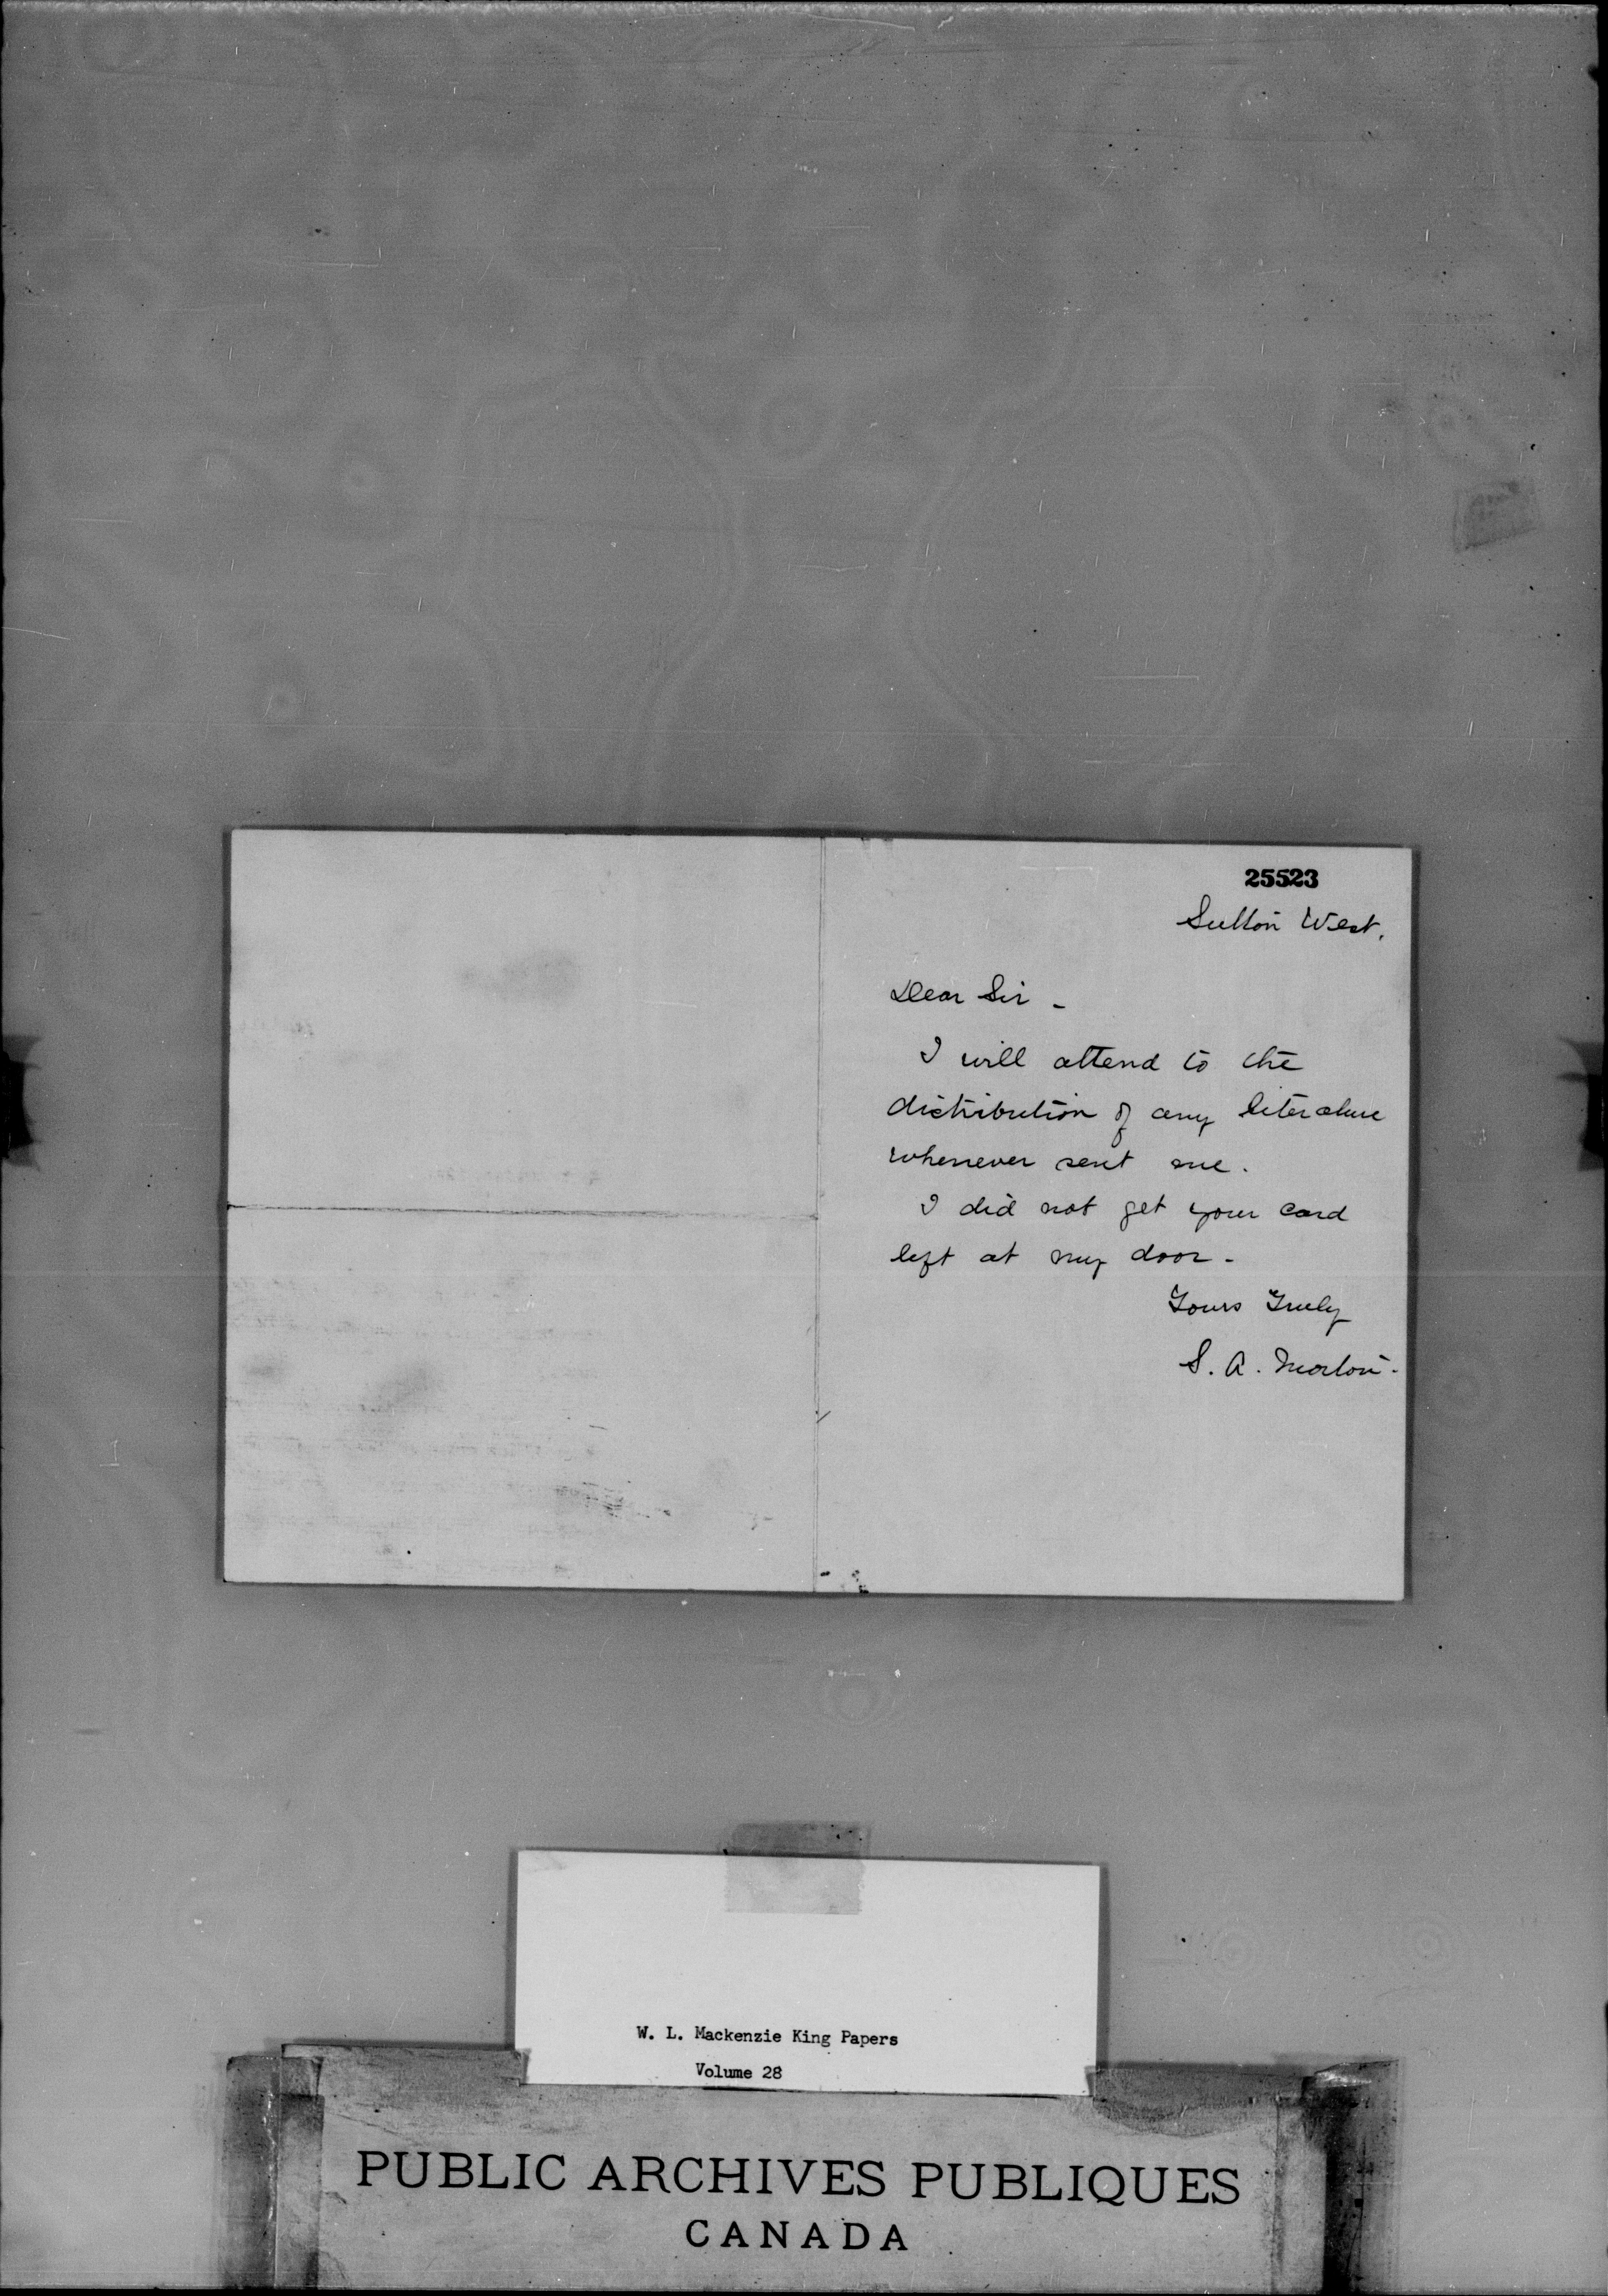 25523
Sutton West.
Dear Sir -
I will attend to the
distribution of any literature
whenever sent me.
I did not get your card
left at my door -
Yours Truly
S. A. Morton -
W. L. Mackenzie King Papers
Volume 28
PUBLIC ARCHIVES PUBLIQUES
CANADA